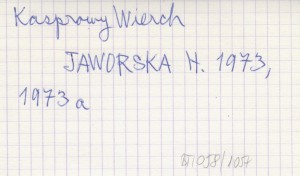 Kasprowy Wierch
JAWORSKA H. 1973,
1973 a